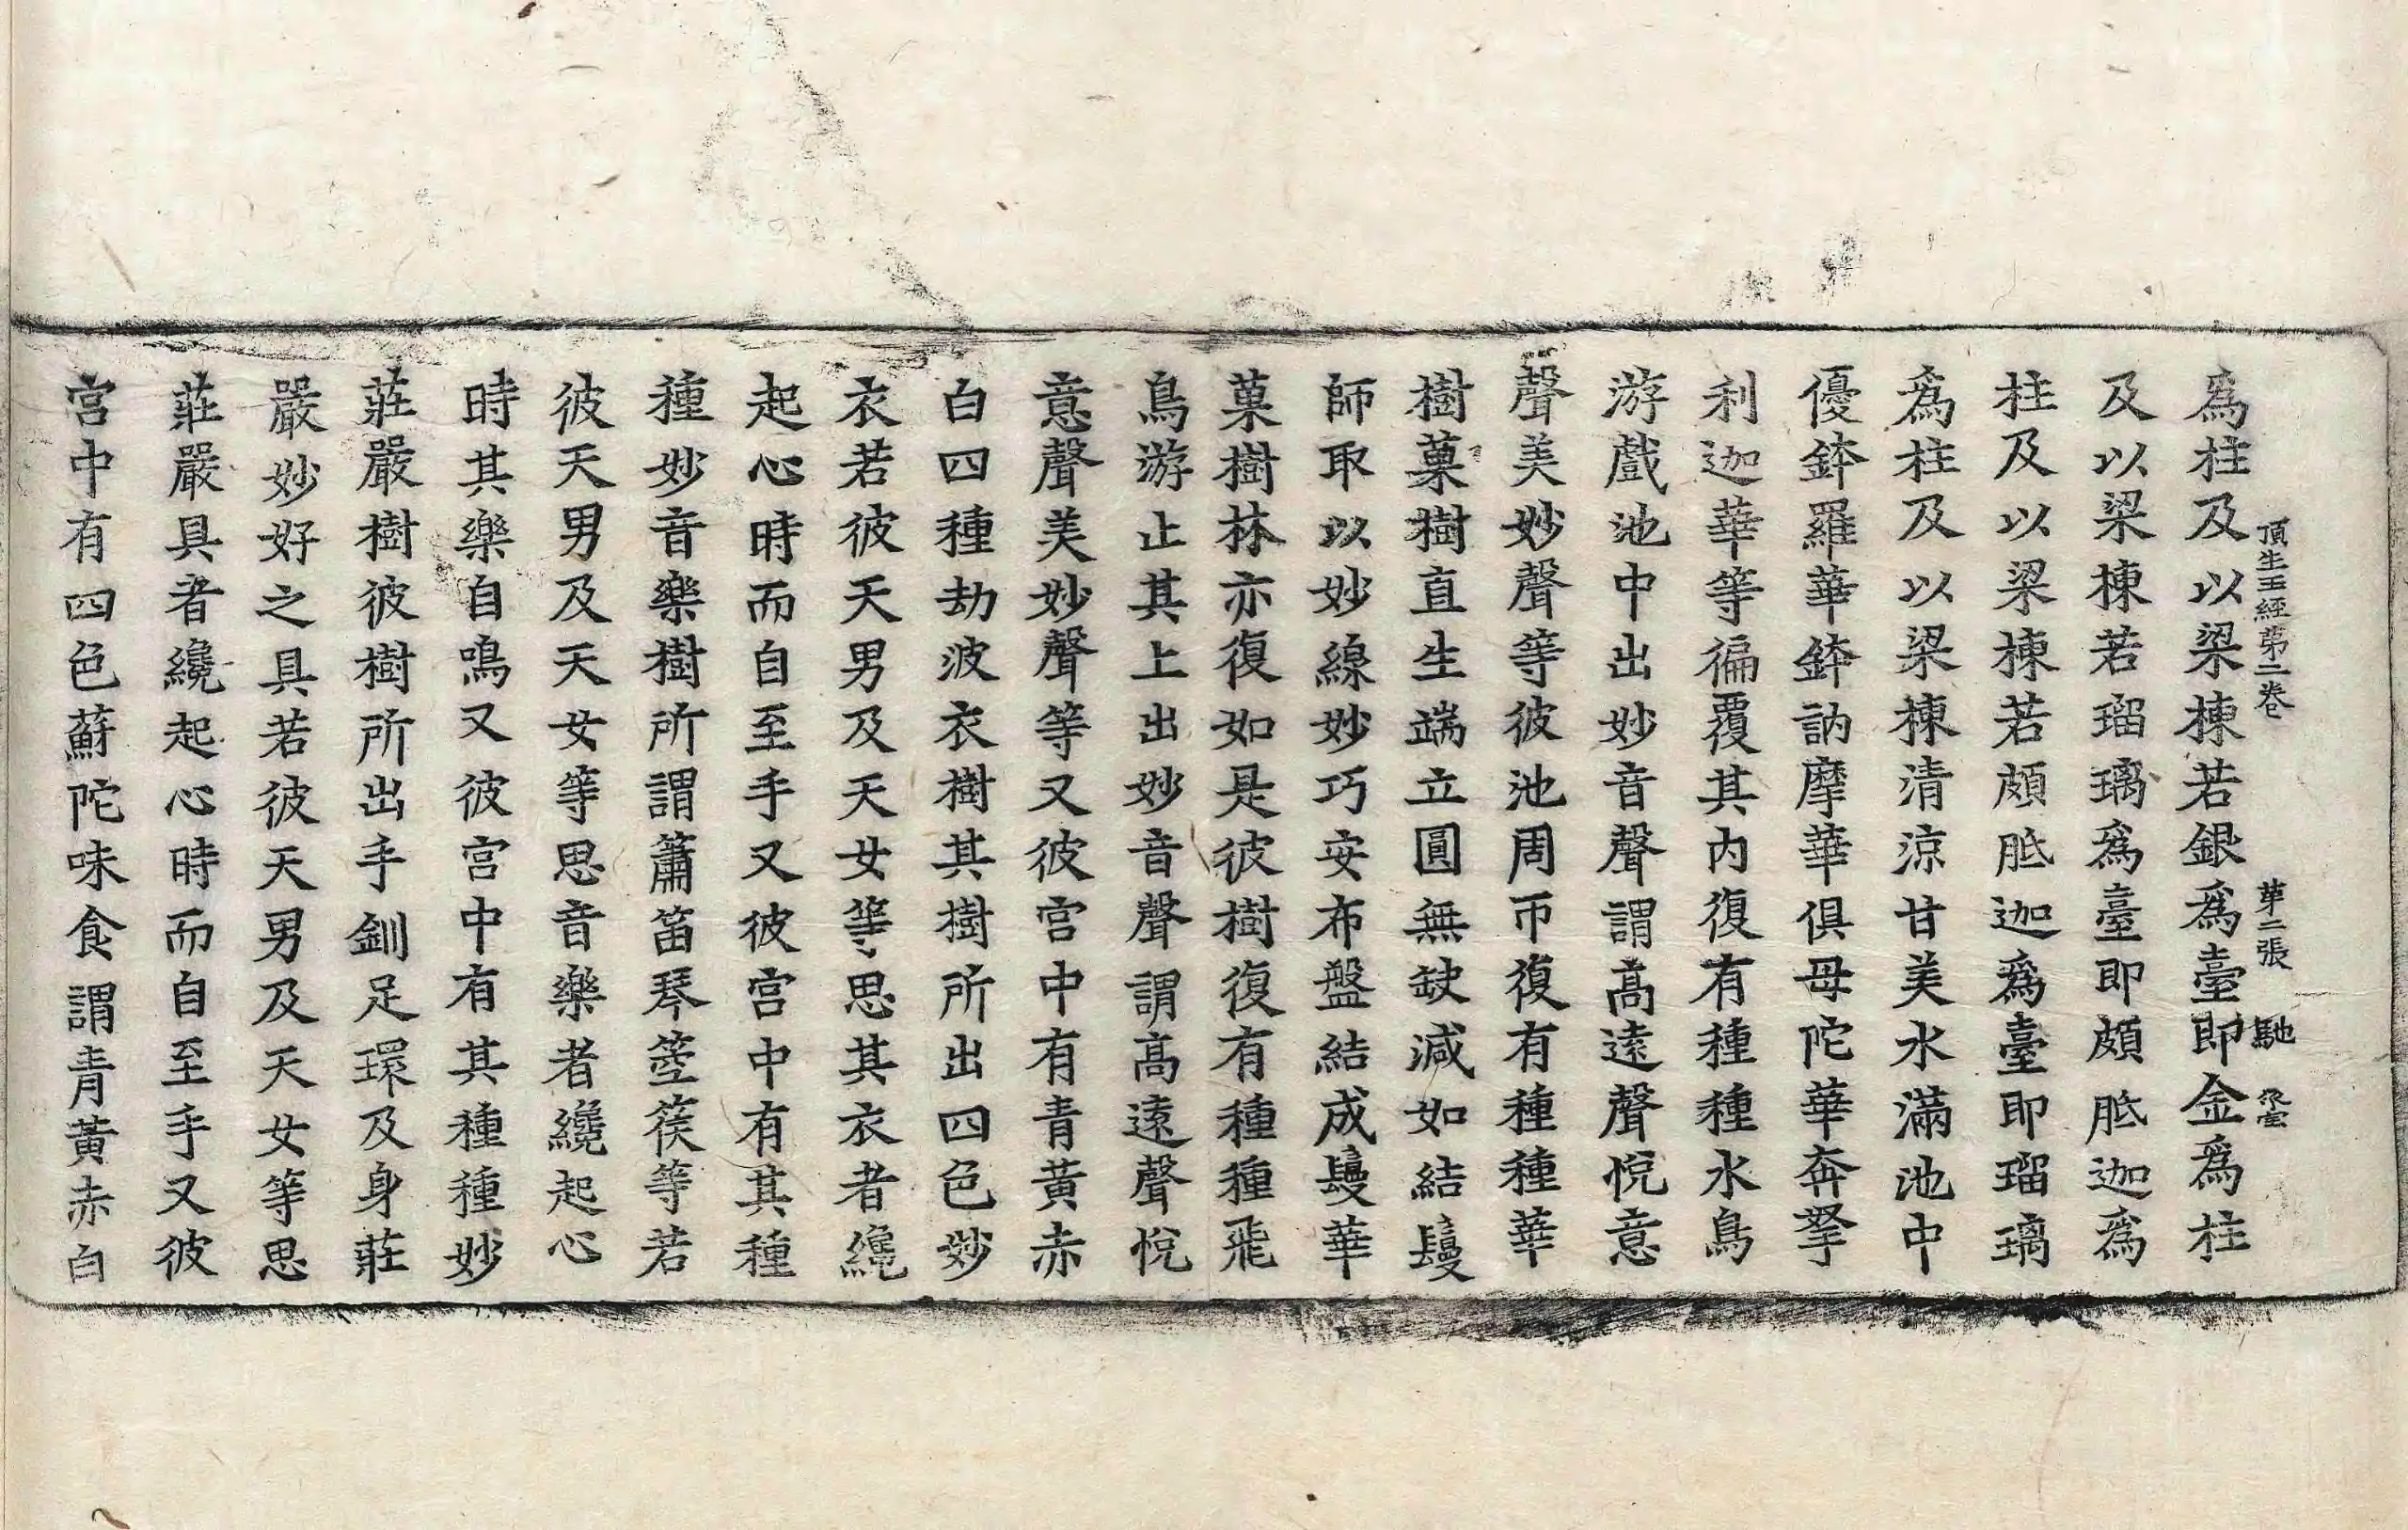 頂生王經第二卷 第二張 馳
爲柱及以梁棟若銀爲臺即金爲柱
及以梁棟若瑠璃爲臺即頗胝迦爲
柱及以梁棟若頗胝迦爲臺即瑠璃
爲柱及以梁棟清涼甘美水滿池中
優鉢羅華鉢訥摩華俱母陀華奔拏
利迦華等徧覆其内復有種種水鳥
游戲池中出妙音聲謂高遠聲悅意
聲美妙聲等彼池周帀復有種種華
樹菓樹直生端立圓無缺減如結鬘
師取以妙線妙巧安布盤結成鬘華
菓樹林亦復如是彼樹復有種種飛
鳥游止其上出妙音聲謂高遠聲悅
意聲美妙聲等又彼宮中有青黃赤
白四種劫波衣樹其樹所出四色妙
衣若彼天男及天女等思其衣者纔
起心時而自至手又彼宮中有其種
種妙音樂樹所謂簫笛琴箜篌等若
彼天男及天女等思音樂者纔起心
時其樂自鳴又彼宮中有其種種妙
莊嚴樹彼樹所出手釧足環及身莊
嚴妙好之具若彼天男及天女等思
莊嚴具者纔起心時而自至手又彼
宮中有四色蘇陀味食謂青黃赤白